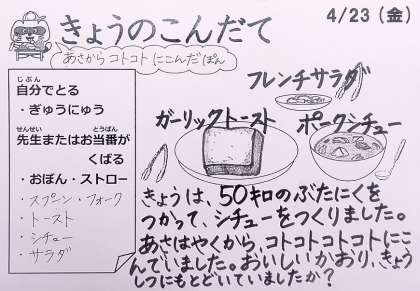 きょうのこんだて
4/23（金）
あさからコトコトにこんだぽん
自分でとる
じぶん
・ぎゅうにゅう
先生またはお当番が
せんせい
とうばん
くばる
・おぼん・ストロー
・スプーン・フォーク
・トースト
・シチュー
・サラダ
フレンチサラダ
ガーリックトースト
ポークシチュー
きょうは、50キロのぶたにくを
つかって、シチューをつくりました。
あさはやくから、コトコトコトコトにこ
んでいました。おいしいかおり、きょう
しつにもとどいていましたか？